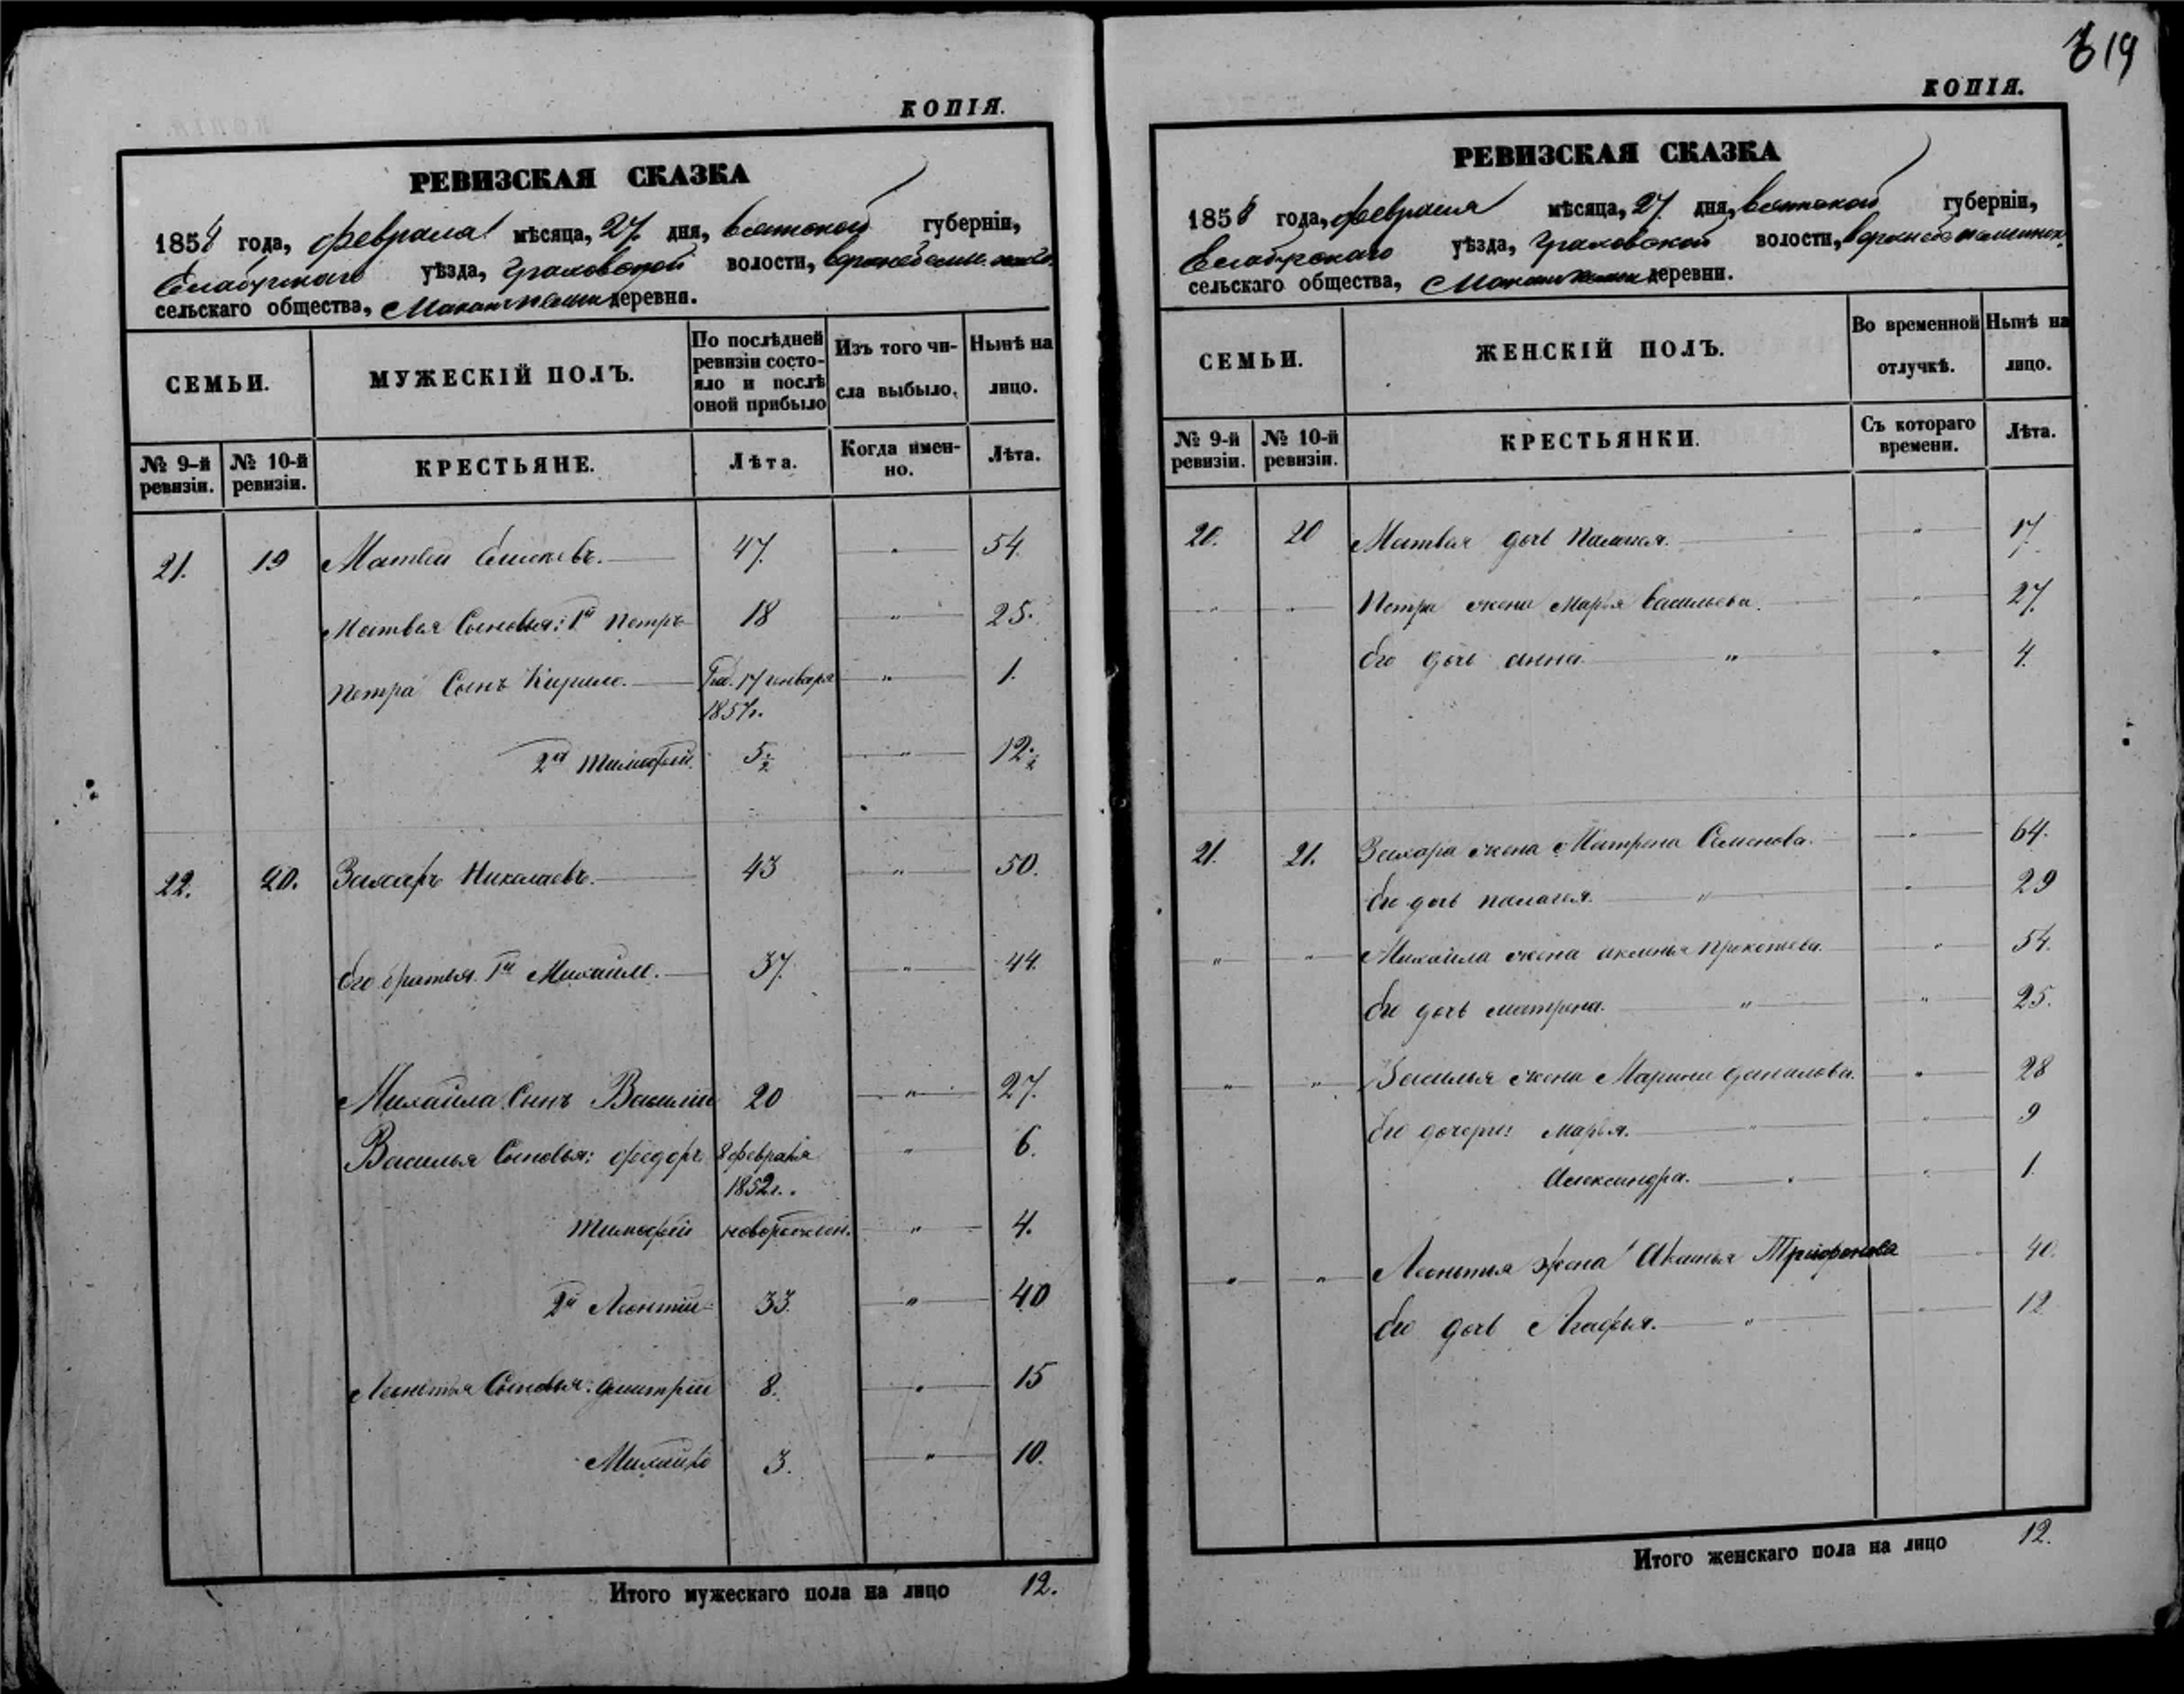 КОПІЯ.
РЕВИЗСКАЯ СКАЗКА
1858 года, февраля мѣсяца, 27 дня, Вятской губерніи,
Елабужскаго уѣзда, Граховской волости,
сельскаго общества, деревня.
СЕМЬИ.
МУЖЕСКІЙ ПОЛЪ.
По послѣдней
ревизіи состо-
яло и послѣ
оной прибыло
Изъ того чи-
сла выбыло.
Нынѣ на
лицо.
№ 9-й
ревизіи.
№ 10-й
ревизіи.
КРЕСТЬЯНЕ.
Лѣта.
Когда имен-
но.
Лѣта.
21. 19 Матвей 47. " 54.
Матвея Сыновья: 1й Петръ 18 " 25.
Петра Сынъ Кирило. Род. 17 января " 1.
1857г.
2й Тимофей 5½ " 12½
22. 20. Захаръ Николаевъ. 43 " 50.
Его братья 1й Михайло. 37. " 44.
Михайла Сынъ Василий 20 " 27.
Василья Сыновья: Федоръ 8 февраля " 6.
1852г.
Тимофей новорожден. " 4.
2й Леонтий 33. " 40
Леонтья Сыновья: Дмитрий 8. " 15
Михайло 3. " 10.
Итого мужескаго пола на лицо 12.
19
КОПІЯ.
РЕВИЗСКАЯ СКАЗКА
1858 года, февраля мѣсяца, 27 дня, Вятской губерніи,
Елабужскаго уѣзда, Граховской волости,
сельскаго общества, деревни.
СЕМЬИ.
ЖЕНСКІЙ ПОЛЪ.
Во временной
отлучкѣ.
Нынѣ на
лицо.
№ 9-й
ревизіи.
№ 10-й
ревизіи.
КРЕСТЬЯНКИ.
Съ котораго
времени.
Лѣта.
20. 20 Матвея дочь Палагея. " 17.
" " Петра жена Марья Васильева. " 27.
Его дочь Анна. " " 4.
21. 21. Захара жена Матрена Семенова. " 64.
Его дочь Палагея. " " 29
" " Михайла жена Акилина " 54.
Его дочь Матрена. " " 25.
" " Василья жена Марина Данилова. " 28
Его дочери: Марья. " " 9
Александра. " " 1.
" " Леонтья жена Акилина Трифонова 40.
Его дочь Агафья. " " 12
Итого женскаго пола на лицо 12.